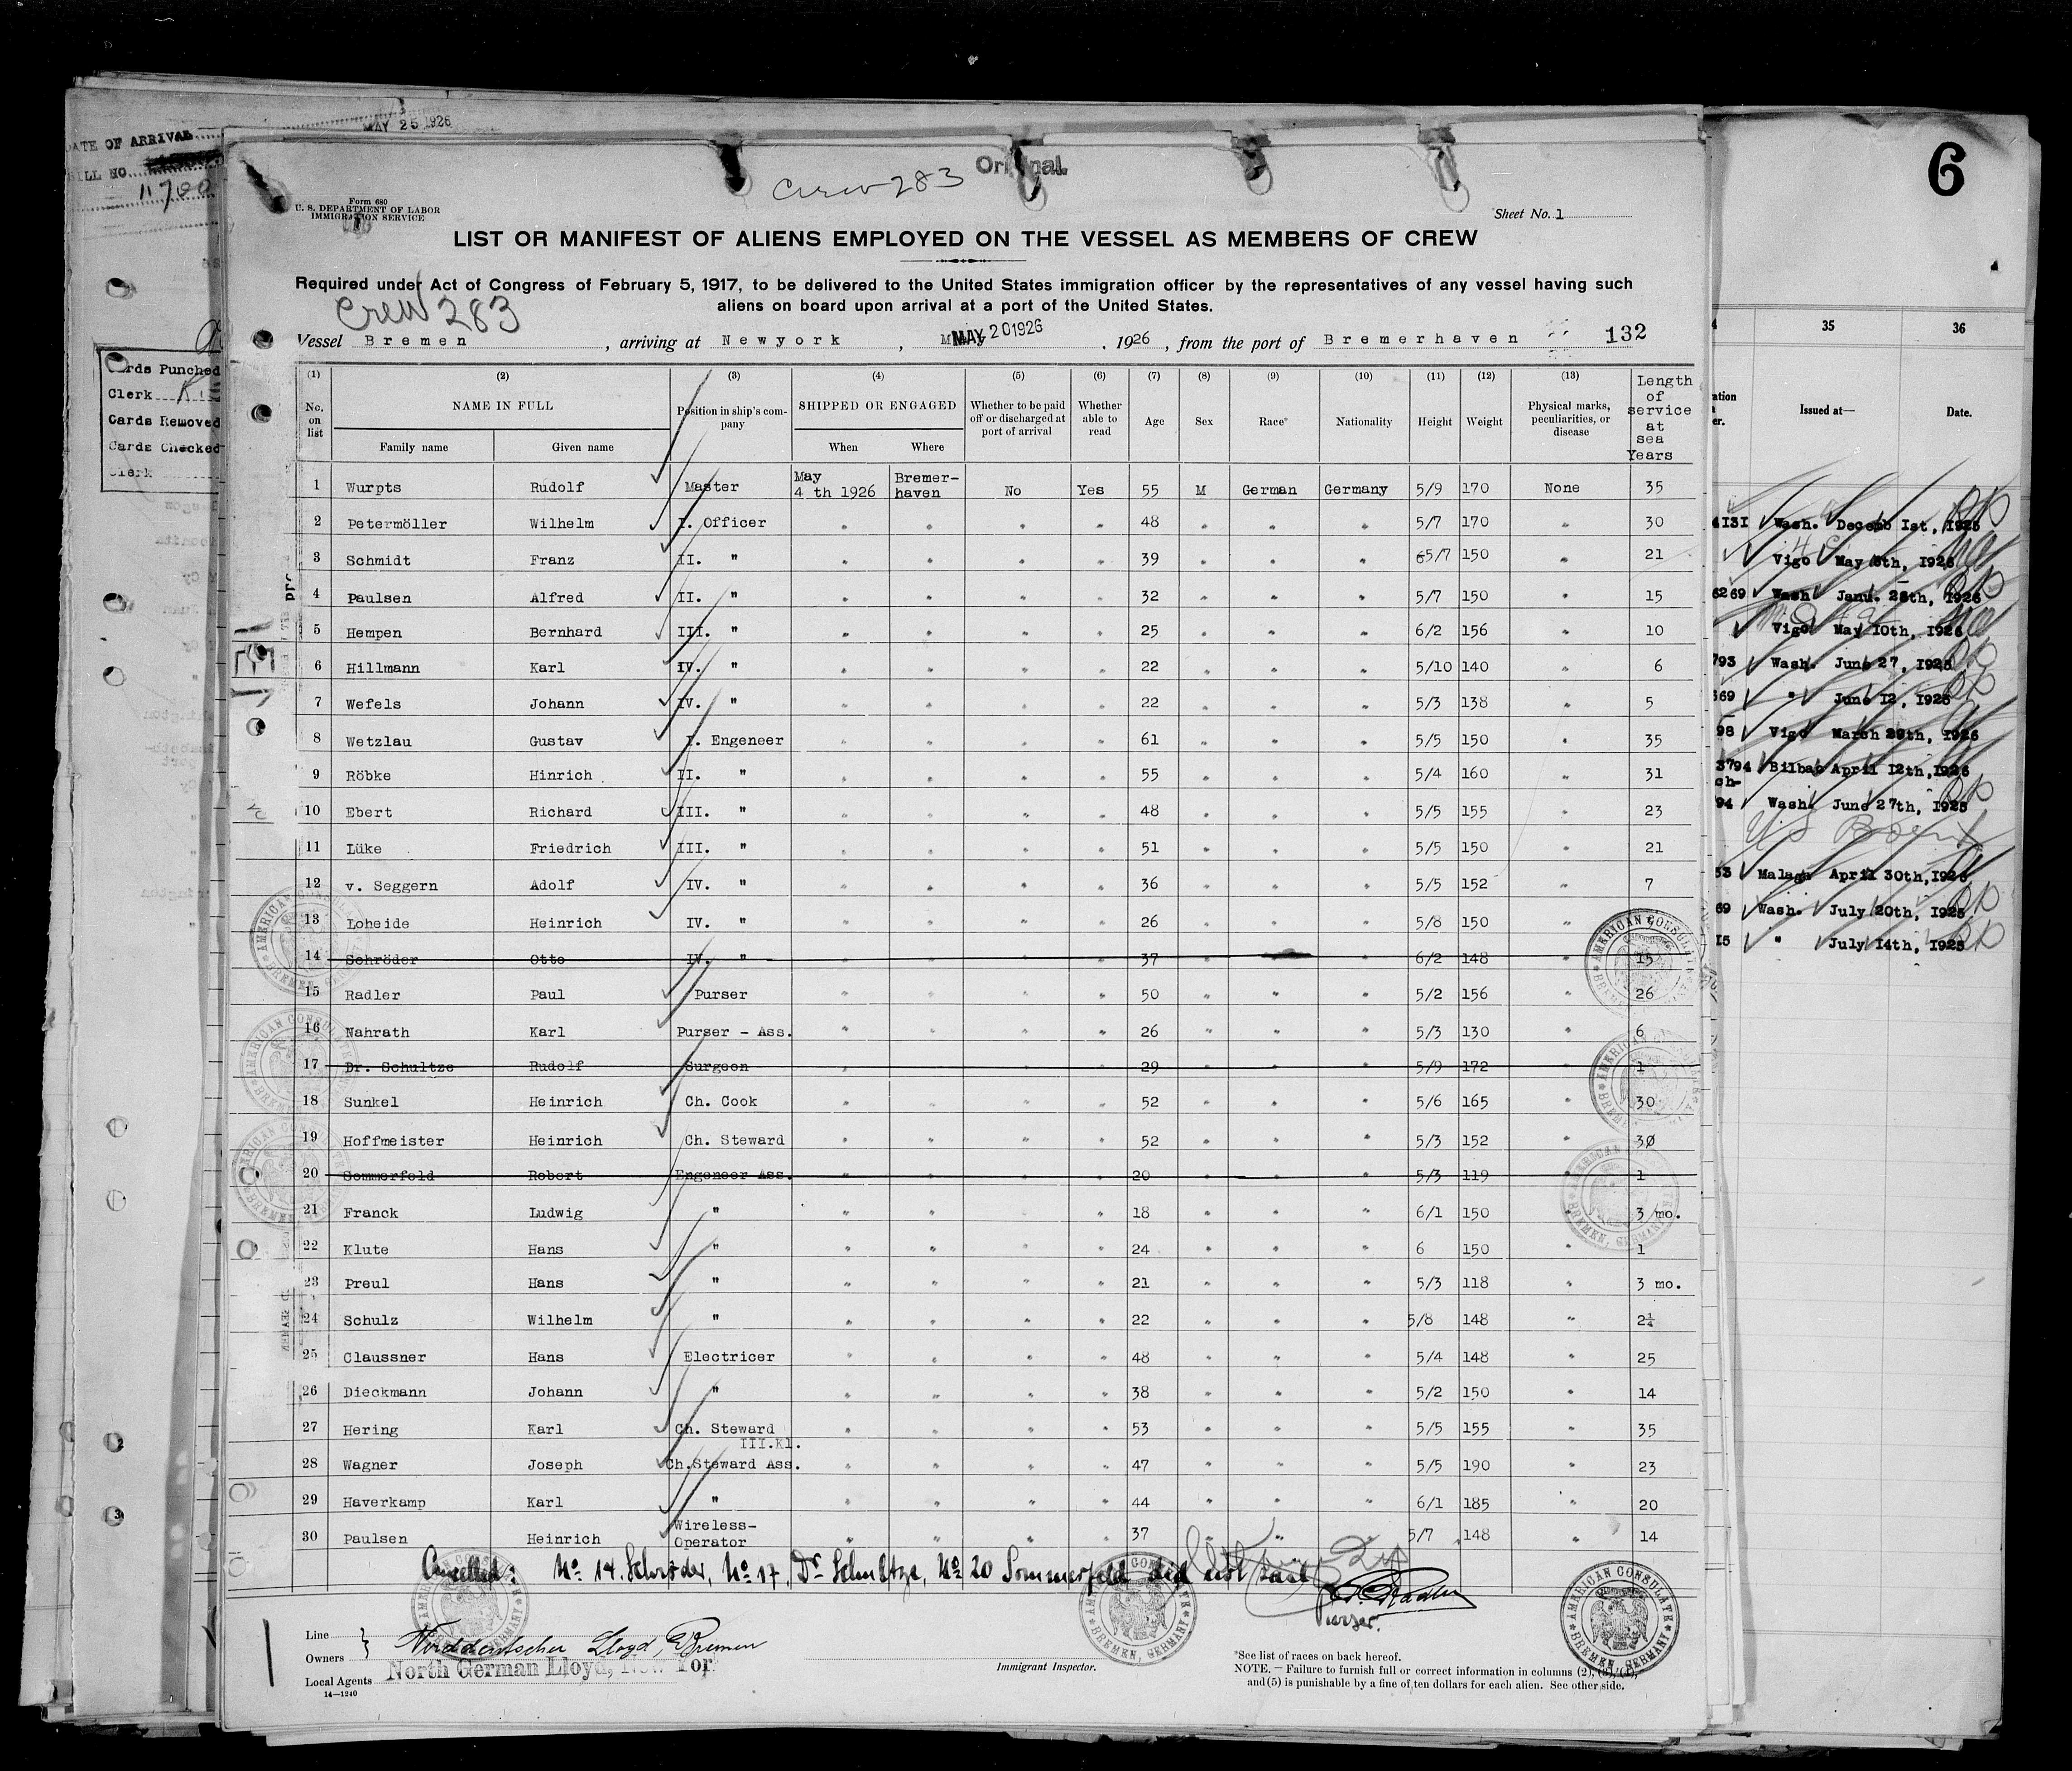 MAY 25 1926
DATE OF ARRIVAL
BILL NO.
11700
6
Original
Crew 283
Form 680
U. S. DEPARTMENT OF LABOR
IMMIGRATION SERVICE
Sheet No. 1
LIST OR MANIFEST OF ALIENS EMPLOYED ON THE VESSEL AS MEMBERS OF CREW
Required under Act of Congress of February 5, 1917, to be delivered to the United States immigration officer by the representatives of any vessel having such
aliens on board upon arrival at a port of the United States.
Crew 283
Vessel Bremen, arriving at Newyork, MAY 20 1926, 1926, from the port of Bremerhaven 132
Cards Punched
Clerk K
Cards Removed
Cards Checked
Clerk
(1) (2) (3) (4) (5) (6) (7) (8) (9) (10) (11) (12) (13)
No. on list NAME IN FULL Position in ship's company SHIPPED OR ENGAGED Whether to be paid off or discharged at port of arrival Whether able to read Age Sex Race* Nationality Height Weight Physical marks, peculiarities, or disease Length of service at sea Years
Family name Given name When Where
1 Wurpts Rudolf Master May 4 th 1926 Bremerhaven No Yes 55 M German Germany 5/9 170 None 35
2 Petermöller Wilhelm I. Officer " " " " 48 " " " 5/7 170 " 30
3 Schmidt Franz II. " " " " " 39 " " " 5/7 150 " 21
4 Paulsen Alfred II. " " " " " 32 " " " 5/7 150 " 15
5 Hempen Bernhard III. " " " " " 25 " " " 6/2 156 " 10
6 Hillmann Karl IV. " " " " " 22 " " " 5/10 140 " 6
7 Wefels Johann IV. " " " " " 22 " " " 5/3 138 " 5
8 Wetzlau Gustav I. Engeneer " " " " 61 " " " 5/5 150 " 35
9 Röbke Hinrich II. " " " " " 55 " " " 5/4 160 " 31
10 Ebert Richard III. " " " " " 48 " " " 5/5 155 " 23
11 Lüke Friedrich III. " " " " " 51 " " " 5/5 150 " 21
12 v. Seggern Adolf IV. " " " " " 36 " " " 5/5 152 " 7
13 Loheide Heinrich IV. " " " " " 26 " " " 5/8 150 " 15
14 Schröder Otto IV. " " " " " 37 " " " 6/2 148 " 15
15 Radler Paul Purser " " " " 50 " " " 5/2 156 " 26
16 Nahrath Karl Purser - Ass. " " " " 26 " " " 5/3 130 " 6
17 Dr. Schultze Rudolf Surgeon " " " " 29 " " " 5/9 172 " 1
18 Sunkel Heinrich Ch. Cook " " " " 52 " " " 5/6 165 " 30
19 Hoffmeister Heinrich Ch. Steward " " " " 52 " " " 5/3 152 " 30
20 Sommerfeld Robert Engeneer Ass. " " " " 20 " " " 5/3 119 " 1
21 Franck Ludwig " " " " " 18 " " " 6/1 150 " 3 mo.
22 Klute Hans " " " " " 24 " " " 6 150 " 1
23 Preul Hans " " " " " 21 " " " 5/3 118 " 3 mo.
24 Schulz Wilhelm " " " " " 22 " " " 5/8 148 " 2¼
25 Claussner Hans Electricer " " " " 48 " " " 5/4 148 " 25
26 Dieckmann Johann " " " " " 38 " " " 5/2 150 " 14
27 Hering Karl Ch. Steward III.Kl. " " " " 53 " " " 5/5 155 " 35
28 Wagner Joseph Ch.Steward Ass. " " " " 47 " " " 5/5 190 " 23
29 Haverkamp Karl " " " " " 44 " " " 6/1 185 " 20
30 Paulsen Heinrich Wireless-Operator " " " " 37 " " " 5/7 148 " 14
Cancelled: No. 14. Schröder, No. 17, Dr Schultze, No. 20 Sommerfeld did not sail
P. Radler
Purser.
Line
Owners
Norddeutscher Lloyd, Bremen
North German Lloyd, New York
Local Agents
14—1240
Immigrant Inspector.
*See list of races on back hereof.
NOTE.—Failure to furnish full or correct information in columns (2), (3), (4),
and (5) is punishable by a fine of ten dollars for each alien. See other side.
AMERICAN CONSULATE BREMEN, GERMANY
35 36
Issued at— Date.
4131 Wash. Decemb 1st, 1925
Vigo May 8th, 1926
6269 Wash Janu. 28th, 1926
Vigo May 10th, 1926
793 Wash. June 27, 1925
369 " June 12, 1925
98 Vigo March 29th, 1926
3794 Bilbao April 12th, 1926
94 Wash. June 27th, 1925
U S Born
53 Malaga April 30th, 1926
69 Wash. July 20th, 1925
15 " July 14th, 1925